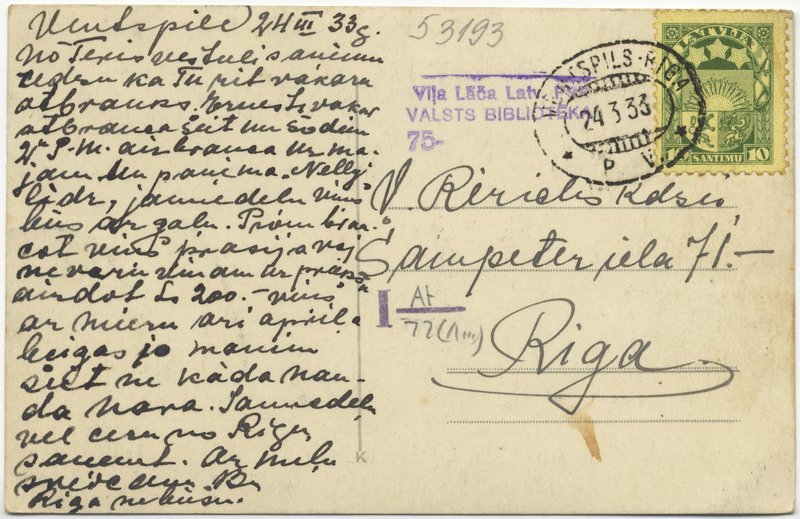 Ventspilī 24 III 33g.
No Teris vēstuli saņēmu
ceļasu ka Tu rīt vakarā
atbrauks. Ernests vakar
atbrauca šeit un šodien
P. M. aizbrauca uz mā-
jām un paņima Nelly
līdz, jamiedeļu viņš
būs ar galu. Prom brau-
cot viņš prasīja vaj
nevaru viņam uz priekšu
aizdot Ls 200.- viņš
ar mieru arī aprīļa
beigas jo manim
šeit ne kāda nau-
da nava. Jamiedeļu
vēl ceru no Rīgas
saņemt. Ar mīļu
sveicienu
Rīga nebūšu.
53193
Viļa Lāča Latv. PSR
VALSTS BIBLIOTĒKA
75-
VENTSPILS-RIGA
24.3.33
P V.
LATVIJA
10 SANTIMU 10
V. Rērichs Kdze
Sampeter iela 71.-
Riga
I At
77(1...)
K